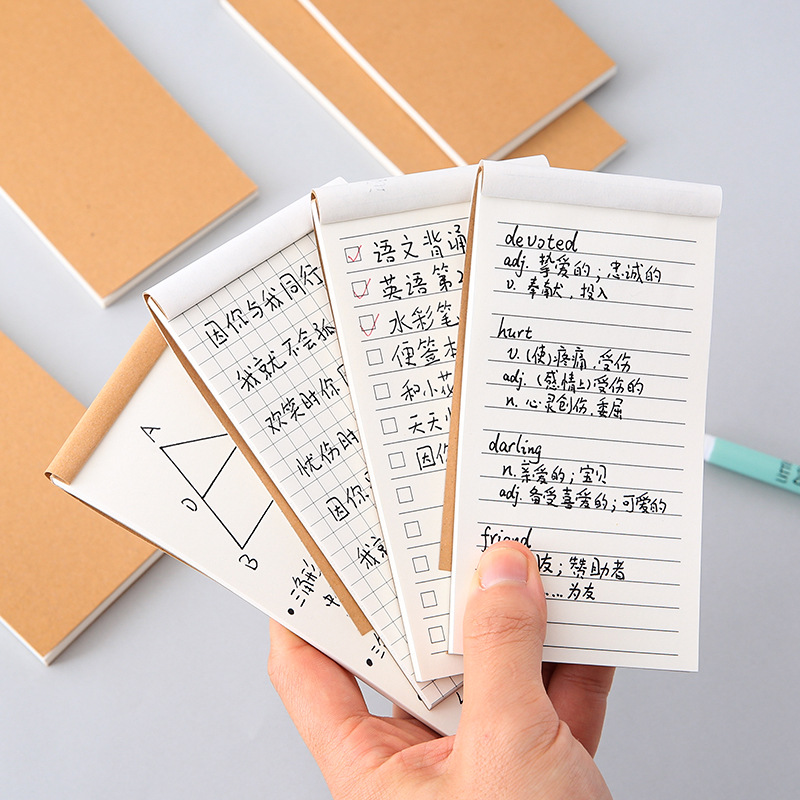 A
D
B
• 三角形
中
• 三
因你与我同行
我就不会孤
欢笑时你
忧伤时
因你
我就
语文背诵
英语第2
水彩笔
便签本
和小花
天天
因你
devoted
adj. 挚爱的；忠诚的
v. 奉献，投入
hurt
v. (使)疼痛，受伤
adj. (感情上)受伤的
n. 心灵创伤，委屈
darling
n. 亲爱的；宝贝
adj. 备受喜爱的；可爱的
friend
友；赞助者
……为友
LITT